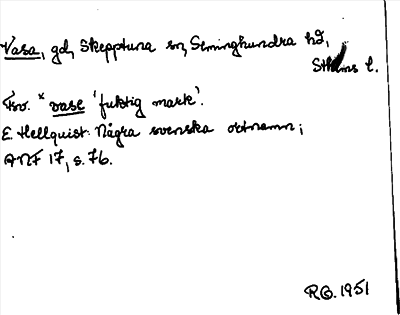 Vasa, gd, Skepptuna sn, Seminghundra hd,
Sthlms l.
Fsv. * vase 'fuktig mark'.
E. Hellquist: Några svenska ortnamn;
ANF 17, s. 76.
R.O. 1951